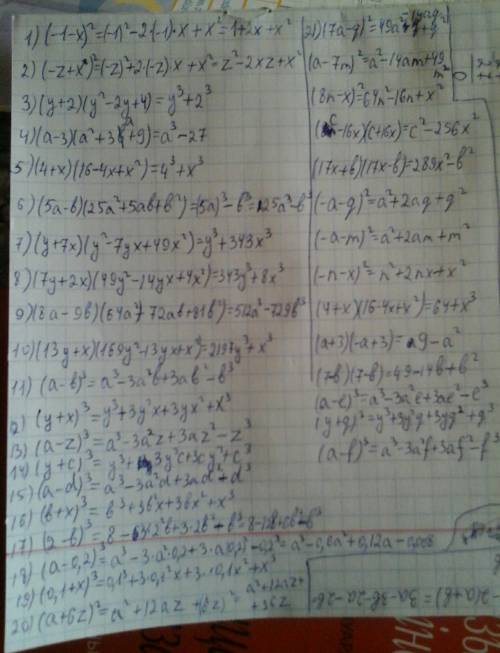 1) (-1-x)²=(-1)²-2·(-1)·x+x²=1+2x+x²
2) (-z+x)²=(-z)²+2·(-z)·x+x²=z²-2xz+x²
3) (y+2)(y²-2y+4)=y³+2³
4) (a-3)(a²+3a+9)=a³-27
5) (4+x)(16-4x+x²)=4³+x³
6) (5a-b)(25a²+5ab+b²)=(5a)³-b³=125a³-b³
7) (y+7x)(y²-7yx+49x²)=y³+343x³
8) (7y+2x)(49y²-14yx+4x²)=343y³+8x³
9) (8a-9b)(64a²+72ab+81b²)=512a³-729b³
10) (13y+x)(169y²-13yx+x²)=2197y³+x³
11) (a-b)³=a³-3a²b+3ab²-b³
12) (y+x)³=y³+3y²x+3yx²+x³
13) (a-z)³=a³-3a²z+3az²-z³
14) (y+c)³=y³+3y²c+3cy²+c³
15) (a-d)³=a³-3a²d+3ad²+d³
16) (b+x)³=b³+3b²x+3bx²+x³
17) (2-b)³=8-3·2²b+3·2b²-b³=8-12b+6b²-b³
18) (a-0,2)³=a³-3·a²·0,2+3·a·0,2²-0,2³=a³-0,6a²+0,12a-0,008
19) (0,1+x)³=0,1³+3·0,1²x+3·0,1x²+x³
20) (a+6z)²=a²+12az+(6z)² a²+12az+
+36z
21) (7a-g)²=49a²-14ag+g²
(a-7m)²=a²-14am+49m²
(8n-x)²=64n²-16n+x²
(c-16x)(c+16x)=c²-256x²
(17x+b)(17x-b)=289x²-b²
(-a-g)²=a²+2ag+g²
(-a-m)²=a²+2am+m²
(-n-x)²=n²+2nx+x²
(4+x)(16-4x+x²)=64+x³
(a+3)(-a+3)=9-a²
(7-b)(7-b)=49-14b+b²
(a-e)³=a³-3a²e+3ae²-e³
(y+g)³=y³+3y²g+3yg²+g³
(a-f)³=a³-3a²f+3af²-f³